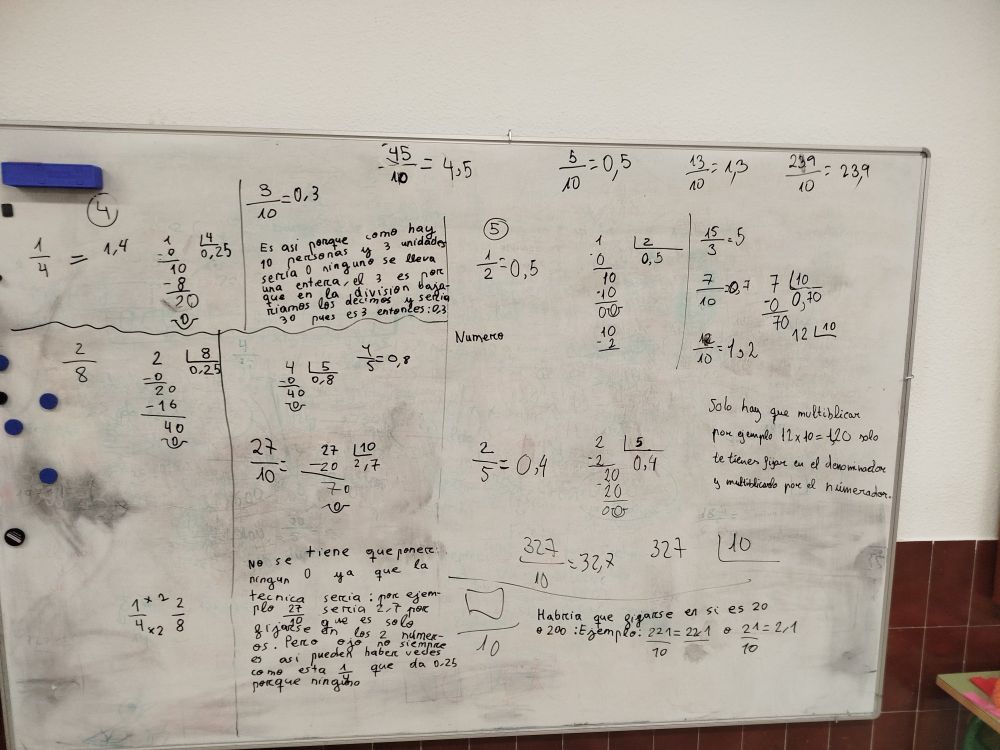 45/10 = 4,5
5/10 = 0,5
13/10 = 1,3
239/10 = 23,9
4
1/4 = 1,4
1 4
-0 0,25
10
-8
20
0
3/10 = 0,3
Es así porque como hay
10 personas y 3 unidades
sería 0 ninguno se lleva
una entera, el 3 es por
que en la división baja-
ríamos los décimos y sería
30 pues es 3 entonces: 0,3
2/8
2 8
-0 0,25
20
-16
40
0
4 5
-0 0,8
40
0
4/5 = 0,8
27/10 =
27 10
-20 2,7
70
0
1 x2 2
4 x2 8
No se tiene que poner
ningun 0 ya que la
tecnica sería: por ejem-
plo 27/10 sería 2,7 por
que es solo
fijarse en los 2 númer-
os. Pero ojo no siempre
es así pueden haber veces
como esta 1/4 que da 0,25
porque ninguno
5
1/2 = 0,5
1 2
-0 0,5
10
-10
00
10
-2
Numero
2/5 = 0,4
2 5
-2 0,4
20
-20
00
15/3 = 5
7/10 = 0,7
7 10
-0 0,70
70
12/10 = 1,2
12 10
Solo hay que multiblicar
por ejemplo 12x10=1,20 solo
te tienes fijar en el denominador
y multiblicarlo por el númerador.
327/10 = 32,7
327 10
10
Habría que gijarse en si es 20
o 200: Ejemplo: 221/10 = 22,1 o 21/10 = 2,1